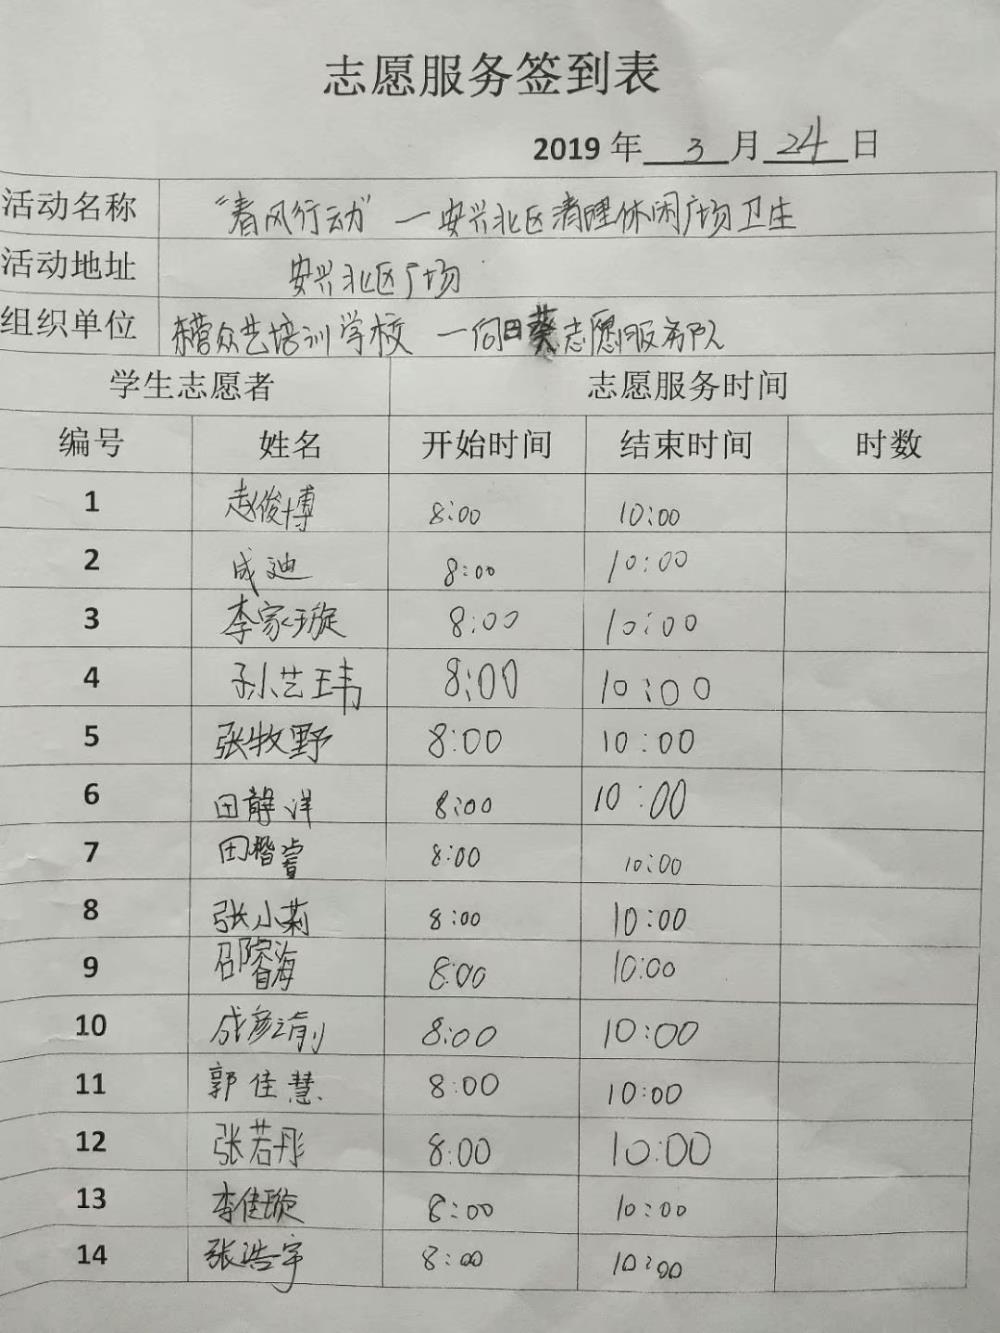 志愿服务签到表
2019 年 3 月 24 日
活动名称 “春风行动” — 安兴北区清理休闲广场卫生
活动地址 安兴北区广场
组织单位 东营众艺培训学校 — 向日葵志愿服务队
学生志愿者 志愿服务时间
编号 姓名 开始时间 结束时间 时数
1 赵俊博 8:00 10:00
2 成迪 8:00 10:00
3 李家璇 8:00 10:00
4 孙艺玮 8:00 10:00
5 张牧野 8:00 10:00
6 田静洋 8:00 10:00
7 田 8:00 10:00
8 张小莉 8:00 10:00
9 邵睿海 8:00 10:00
10 成彦 8:00 10:00
11 郭佳慧 8:00 10:00
12 张若彤 8:00 10:00
13 李佳璇 8:00 10:00
14 张浩宇 8:00 10:00